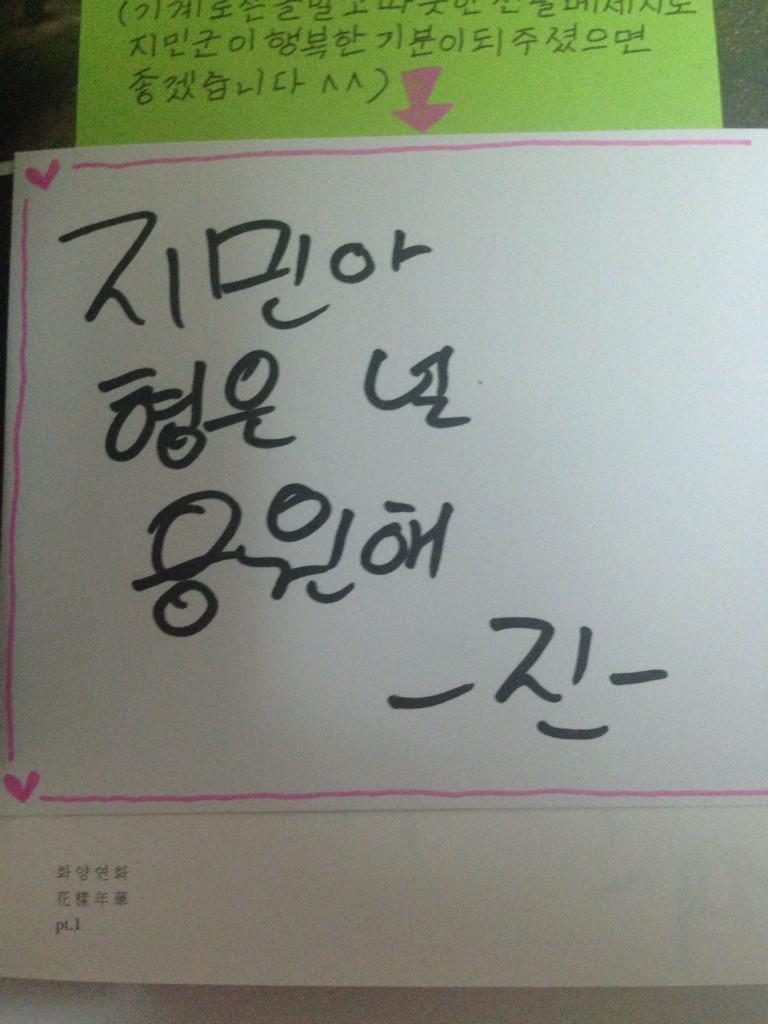 (기계로쓴글말고 따뜻한 손글메세지로
지민군이 행복한 기분이되주셨으면
좋겠습니다 ^^)
지민아
형은 널
응원해
-진-
화양연화
花樣年華
pt.1